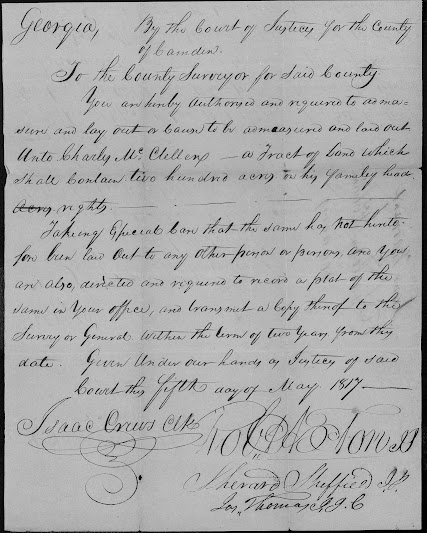 Georgia, By the Court of Justices for the County
of Camden.
To the County Surveyor for said County
You are hereby authorised and required to adma-
sure and lay out or Cause to be admeasured and laid out
Unto Charles Mc Clellen — a Tract of Land which
shall Contain two hundred acres on his family head
Acres rights.
Takeing Especial Care that the same has Not hereto-
fore been laid out to any other person or persons, and You
are also, directed and required to record a plat of the
same in Your office, and transmit a Copy therof to the
Surveyor General within the term of two Years from this
date. Given Under our hands as Justices of said
Court this fifth day of May 1817
Isaac Crews Clk
Sherard Sheffield J.J.
Jos. Thomas J.J.C